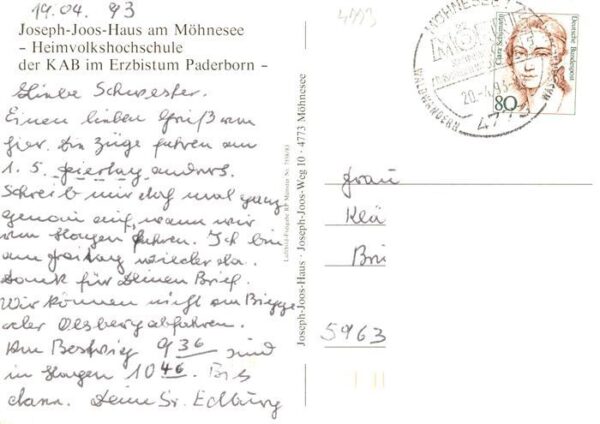 19.04.93
Joseph-Joos-Haus am Möhnesee
- Heimvolkshochschule
der KAB im Erzbistum Paderborn -
Liebe Schwester.
Einen lieben Gruß von
hier. Die Züge fahren am
1. 5. Feiertag anders.
Schreib mir doch mal ganz
genau auf, wann wir
von Hagen fahren. Ich bin
am Freitag wieder da.
Dank für Deinen Brief.
Wir können nicht am Bigge
oder Olsberg abfahren.
Am Bestwig 9 36 sind
in Hagen 10 46. Bis
dann. Deine Sr. Edburg
Joseph-Joos-Haus · Joseph-Joos-Weg 10 · 4773 Möhnesee
4773
MÖHNESEE
20.-4.93
WALDWANDERN
4773
Clara Schumann
Deutsche Bundespost
80
Frau
Klä
Bri
5963